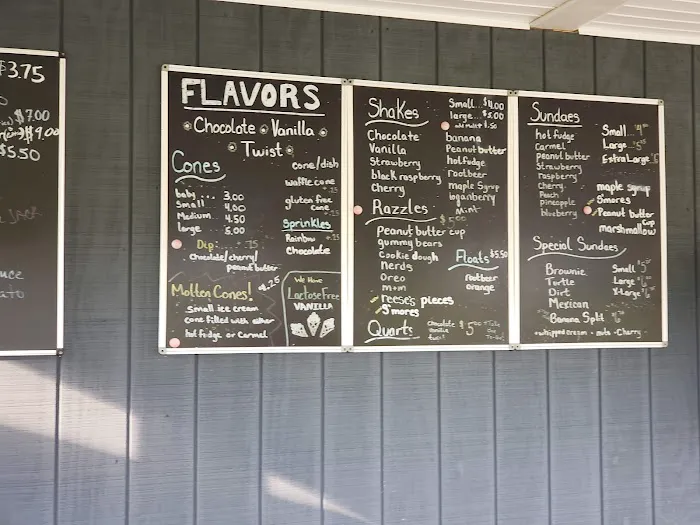 $3.75
$7.00
$9.00
$5.50
FLAVORS
Chocolate Vanilla
Twist
Cones
baby... 3.00
Small 4.00
Medium 4.50
large 5.00
cone/dish
waffle cone
gluten free
cone
Sprinkles
Rainbow
Chocolate
Dip
chocolate/cherry/
peanut butter
Molten Cones!
small ice cream
cone filled with either
hot fudge or carmel
We Have
Lactose Free
VANILLA
Shakes
Small.. $4.00
large.. $5.00
add malt $.50
Chocolate
Vanilla
Strawberry
black raspberry
Cherry
banana
Peanut butter
hot fudge
rootbeer
maple Syrup
loganberry
Mint
Razzles
Peanut butter cup
gummy bears
cookie dough
Nerds
Oreo
m+m
reese's pieces
S'mores
Floats $5.50
rootbeer
orange
Quarts
chocolate
vanilla
twist
Sundaes
hot fudge
Carmel
peanut butter
Strawberry
raspberry
Cherry
Peach
pineapple
blueberry
Small
Large
Extra Large
maple syrup
S'mores
Peanut butter
cup
marshmallow
Special Sundaes
Brownie
Turtle
Dirt
Mexican
Banana Split
Small
Large
X-Large
whipped cream - nuts - Cherry